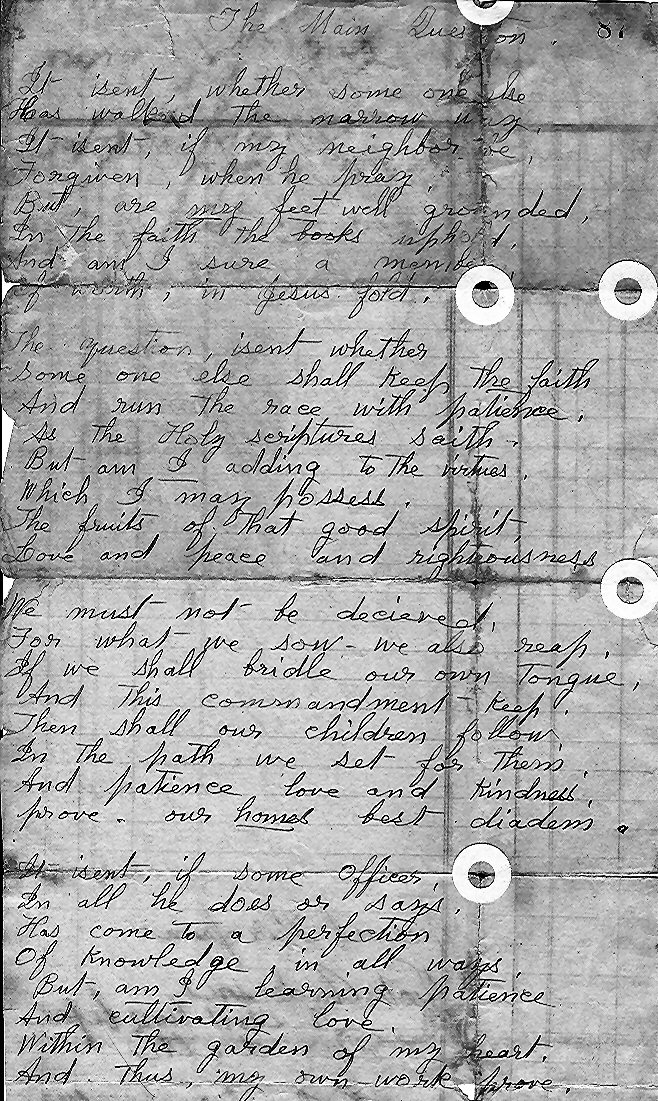 The Main Question. 87
It isent, whether some one else
Has walked the narrow way,
It isent, if my neighbor
Forgiven, when he pray
But, are my feet well grounded,
In the faith the books uphold,
And am I sure a member
Of worth, in Jesus fold.
The question, isent whether
Some one else shall keep the faith
And run the race with patience,
As the Holy scriptures saith.
But am I adding to the virtues,
Which I may possess.
The fruits of that good spirit
Love and peace and righteousness
We must not be decieved,
For what we sow - we also reap,
If we shall bridle our own Tongue,
And this commandment keep.
Then shall our children follow,
In the path we set for them,
And patience love and kindness,
prove - our homes best diadem.
It isent, if some Officer,
In all he does or says,
Has come to a perfection
Of knowledge in all ways,
But, am I learning patience
And cultivating love,
Within the garden of my heart,
And thus, my own work prove.